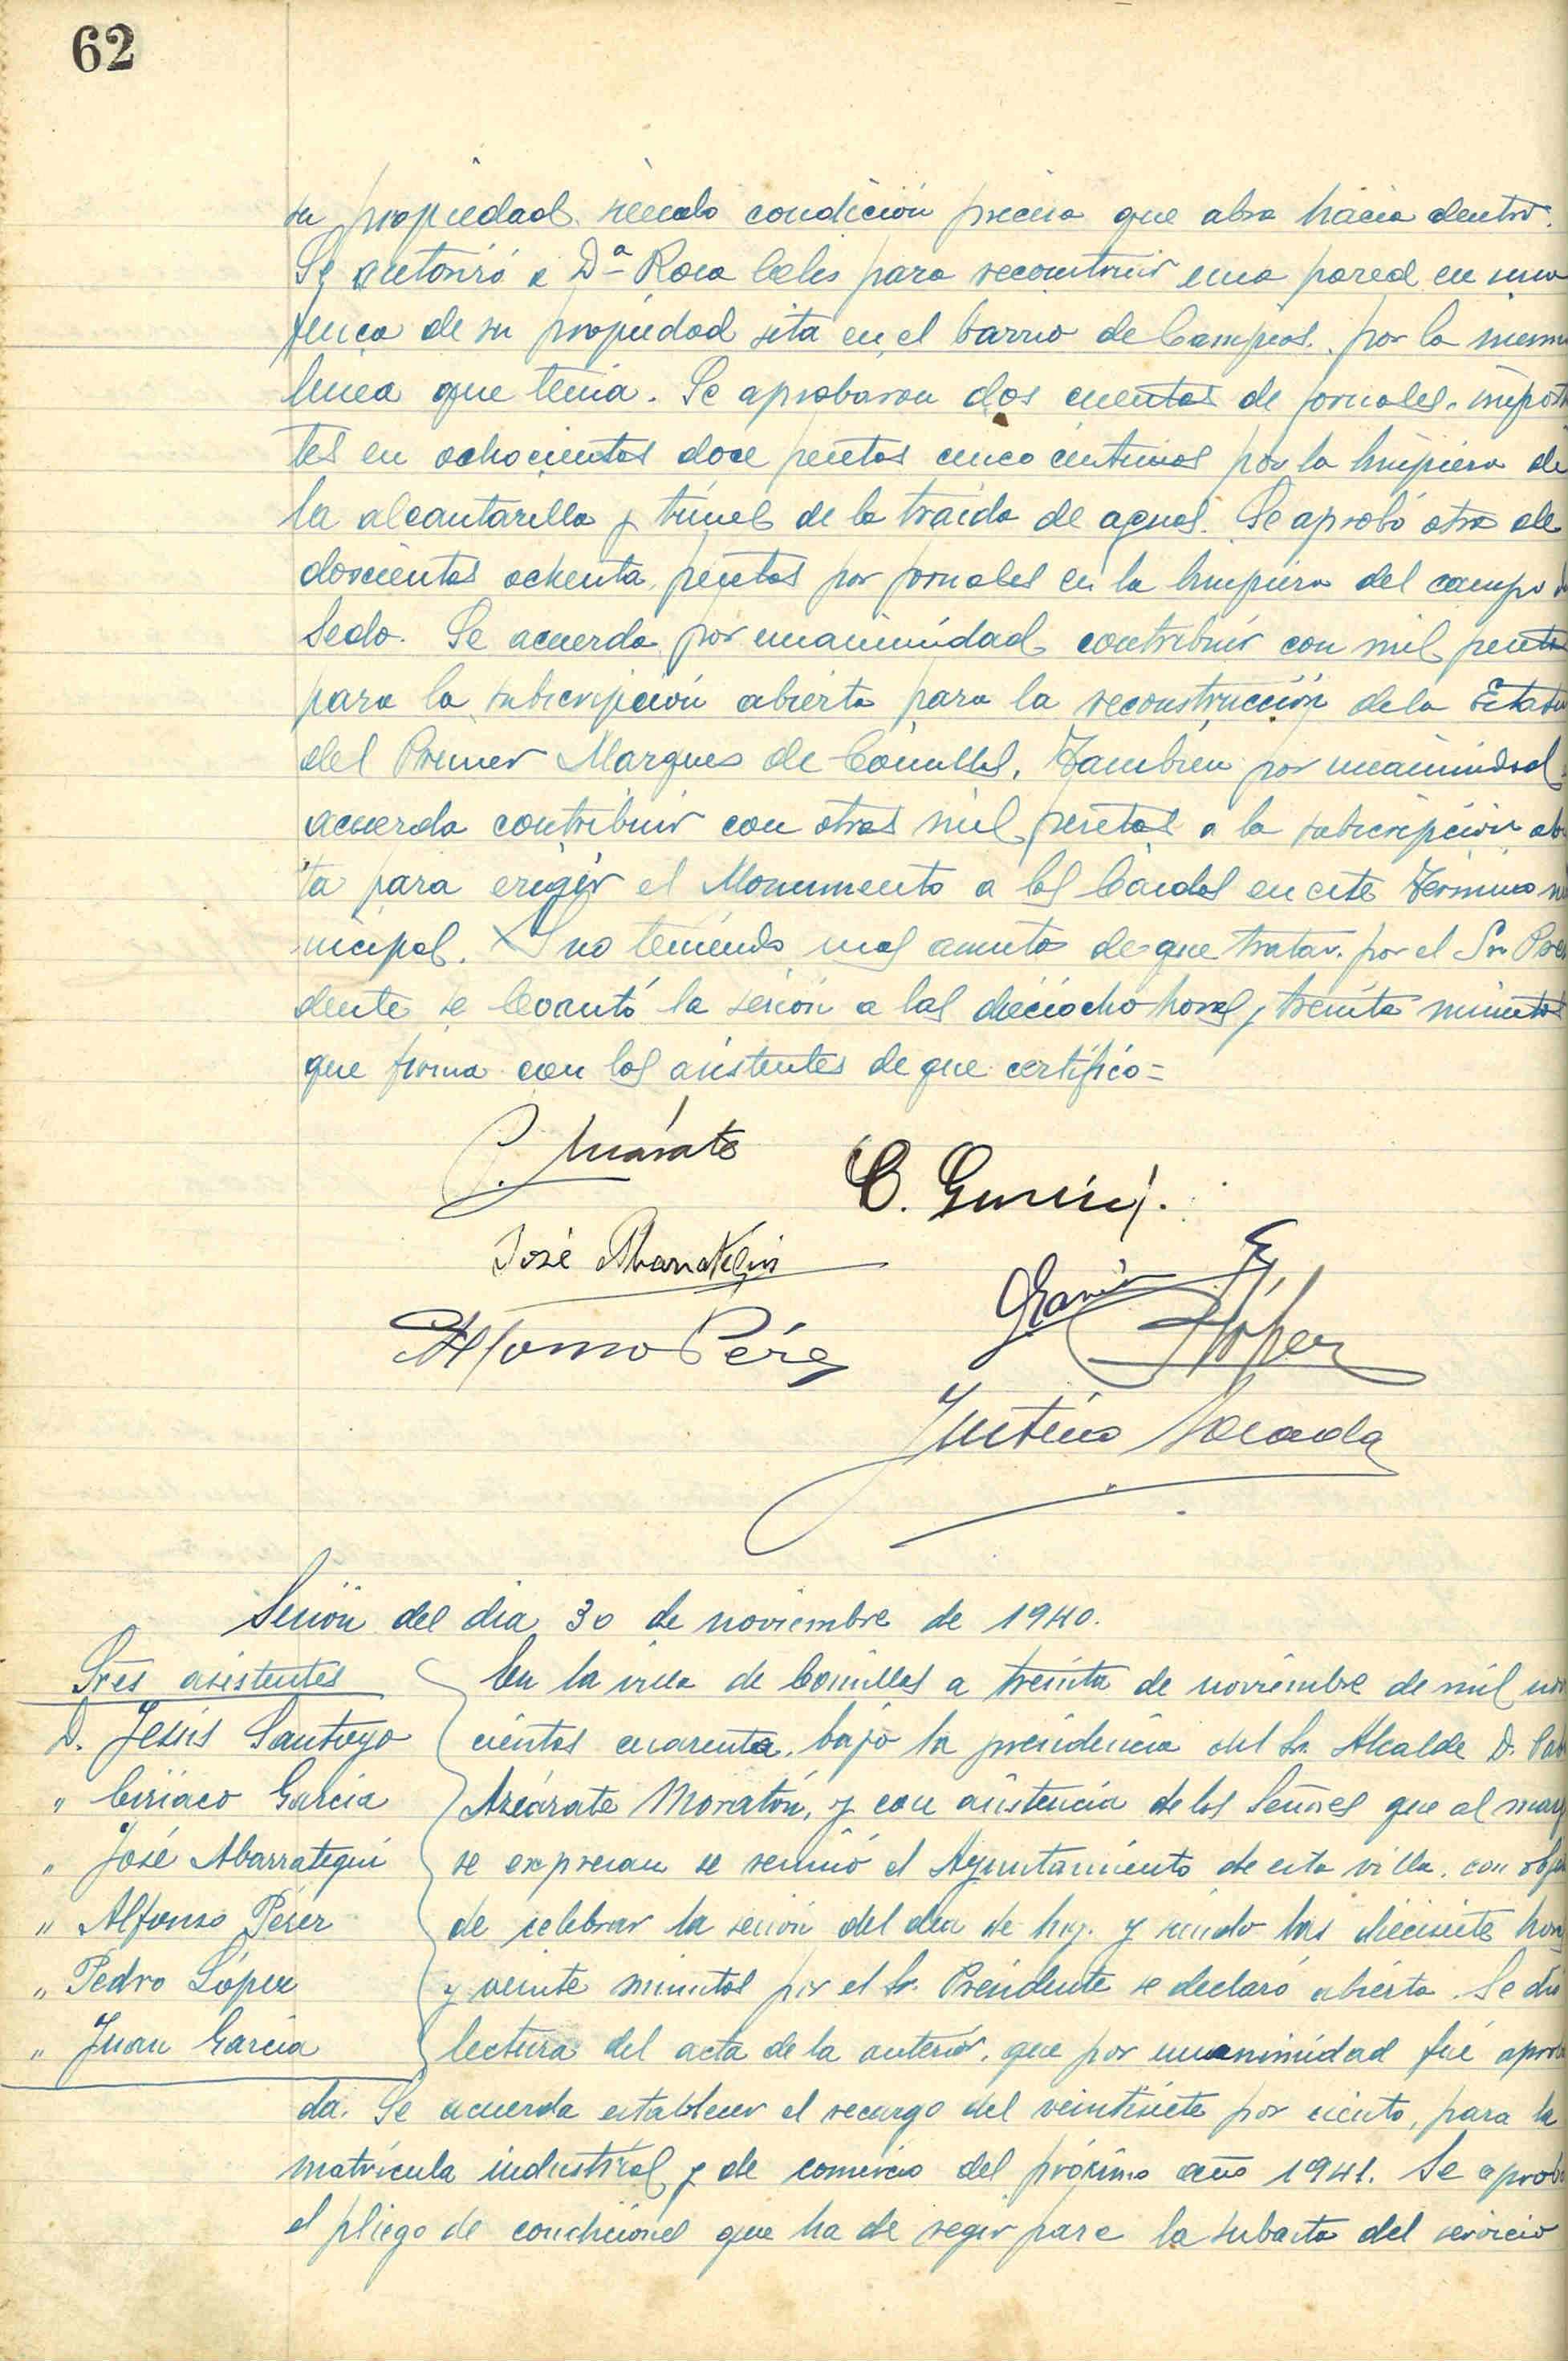 62
su propiedad siendo condición precisa que abra hacia dentro.
Se autorizó a Dª Rosa Celis para reconstruir una pared en una
finca de su propiedad sita en el barrio de Campios. por la misma
linea que tenia. Se aprobaron dos cuentas de jornales. import
tes en ochocientas doce pesetas cinco centimos por la limpieza de
la alcantarilla y túnel de la traida de aguas. Se aprobó otra de
doscientas ochenta pesetas por jornales en la limpieza del campo
Sedo. Se acuerda por unanimidad contribuir con mil peseta
para la subscripción abierta para la reconstrucción de la Estatu
del Primer Marques de Comillas. También por unanimidad
acuerda contribuir con otras mil pesetas a la subscripción ab
ta para erigir el Monumento a los Caidos en este término m
nicipal. Y no teniendo mas asuntos de que tratar. por el Sr. Pre
dente se levantó la sesión a las dieciocho horas y treinta minutos
que firma con los asistentes de que certifico=
C. Gurcía.
José Abarrategui
Alfonso Pérez
López
Justino
Sesión del dia 30 de noviembre de 1940.
Sres asistentes
D. Jesús Santoyo
" Ciriaco García
" José Abarrategui
" Alfonso Pérez
" Pedro López
" Juan García
En la villa de Comillas a treinta de noviembre de mil nov
cientos cuarenta. bajo la presidencia del Sr. Alcalde D. Pab
Azcárate Moratón, y con asistencia de los Señores que al marg
se expresan se reunió el Ayuntamiento de esta villa. con obje
de celebrar la sesión del dia de hoy. y siendo las diecisiete hora
y veinte minutos por el Sr. Presidente se declaró abierta. Se dio
lectura del acta de la anterior. que por unanimidad fué aproba
da. Se acuerda establecer el recargo del veintisiete por ciento, para la
matrícula industrial y de comercio del próximo año 1941. Se aprob
el pliego de condiciones que ha de regir para la subasta del servicio